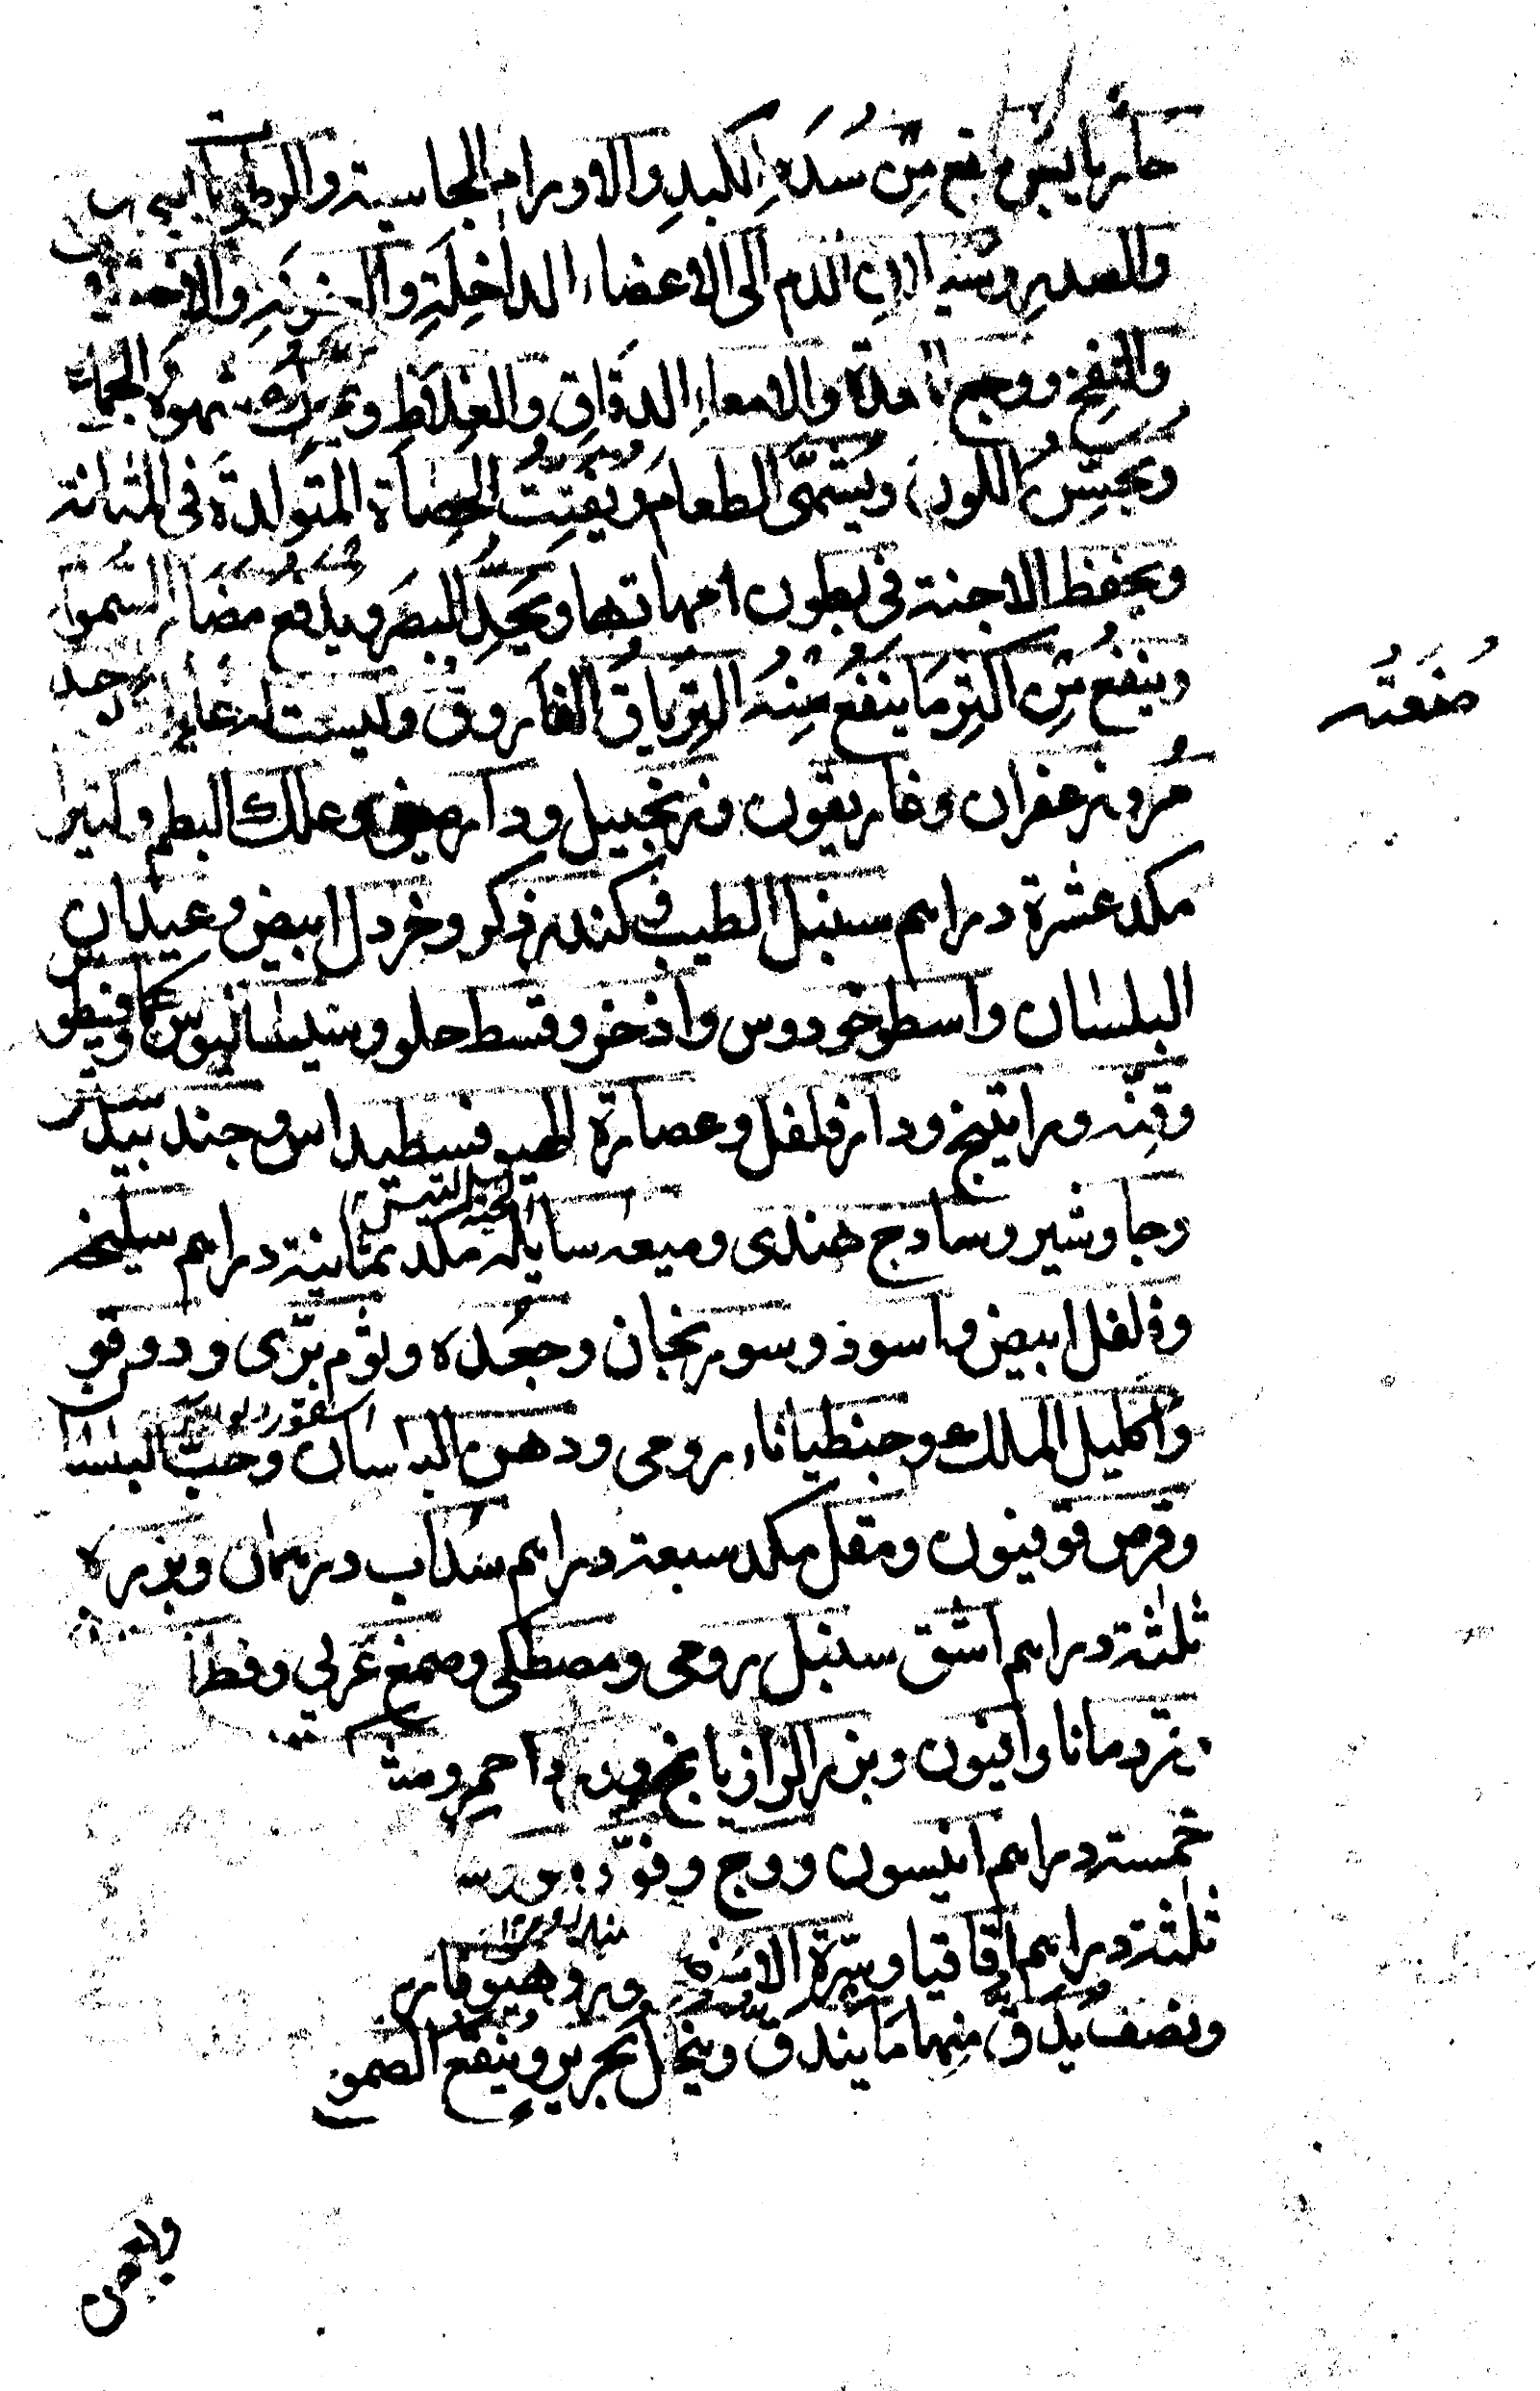 حار يابس نفع من سدة الكبد والاورام الجاسية
والصدر وسيلان الدم الى الاعضاء الداخلة
والنفخ ووجع المعدة والامعاء الدقاق والغلاظ ويحرك شهوة الجماع
ويحسن اللون ويشهى الطعام ويفتت الحصاة المتولدة فى المثانة
ويحفظ الاجنة فى بطون امهاتها ويحد البصر ويدفع مضار السموم
وينفع من اكثر ما ينفع منه الترياق الفاروق وليست له
صنعته
مر وزعفران وغاريقون وزنجبيل ودارصينى وعلك البطم وكثيرا
مكد عشرة دراهم سنبل الطيب وكندر ذكر وخردل ابيض وعيدان
البلسان واسطوخودوس واذخر وقسط حلو وسيساليوس وكمافيطوس
وقنه وراتينج ودارفلفل وعصارة هيوفسطيداس وجندبيدستر
لحية التيس
وجاوشير وسادج هندى وميعه سايله مكد ثمانية دراهم سليخه
وفلفل ابيض واسود وسورنجان وجعده وثوم برى ودوقو
واكليل الملك وجنطيانا رومى ودهن البلسان وحب البلسان
وقرص قوفيون ومقل مكد سبعة دراهم سداب درهمان وبزره
ثلثة دراهم اشق سنبل رومى ومصطكى وصمغ عربى
قردمانا وافيون وبزر الرازيانج وورد احمر
خمسة دراهم انيسون ووج وفو
ثلثة دراهم اقاقيا وسرة الاسقنقور وهيوفاريقون
ونصف يدق منها ما يندق وينخل بحرير وينقع الصموغ
وبعض